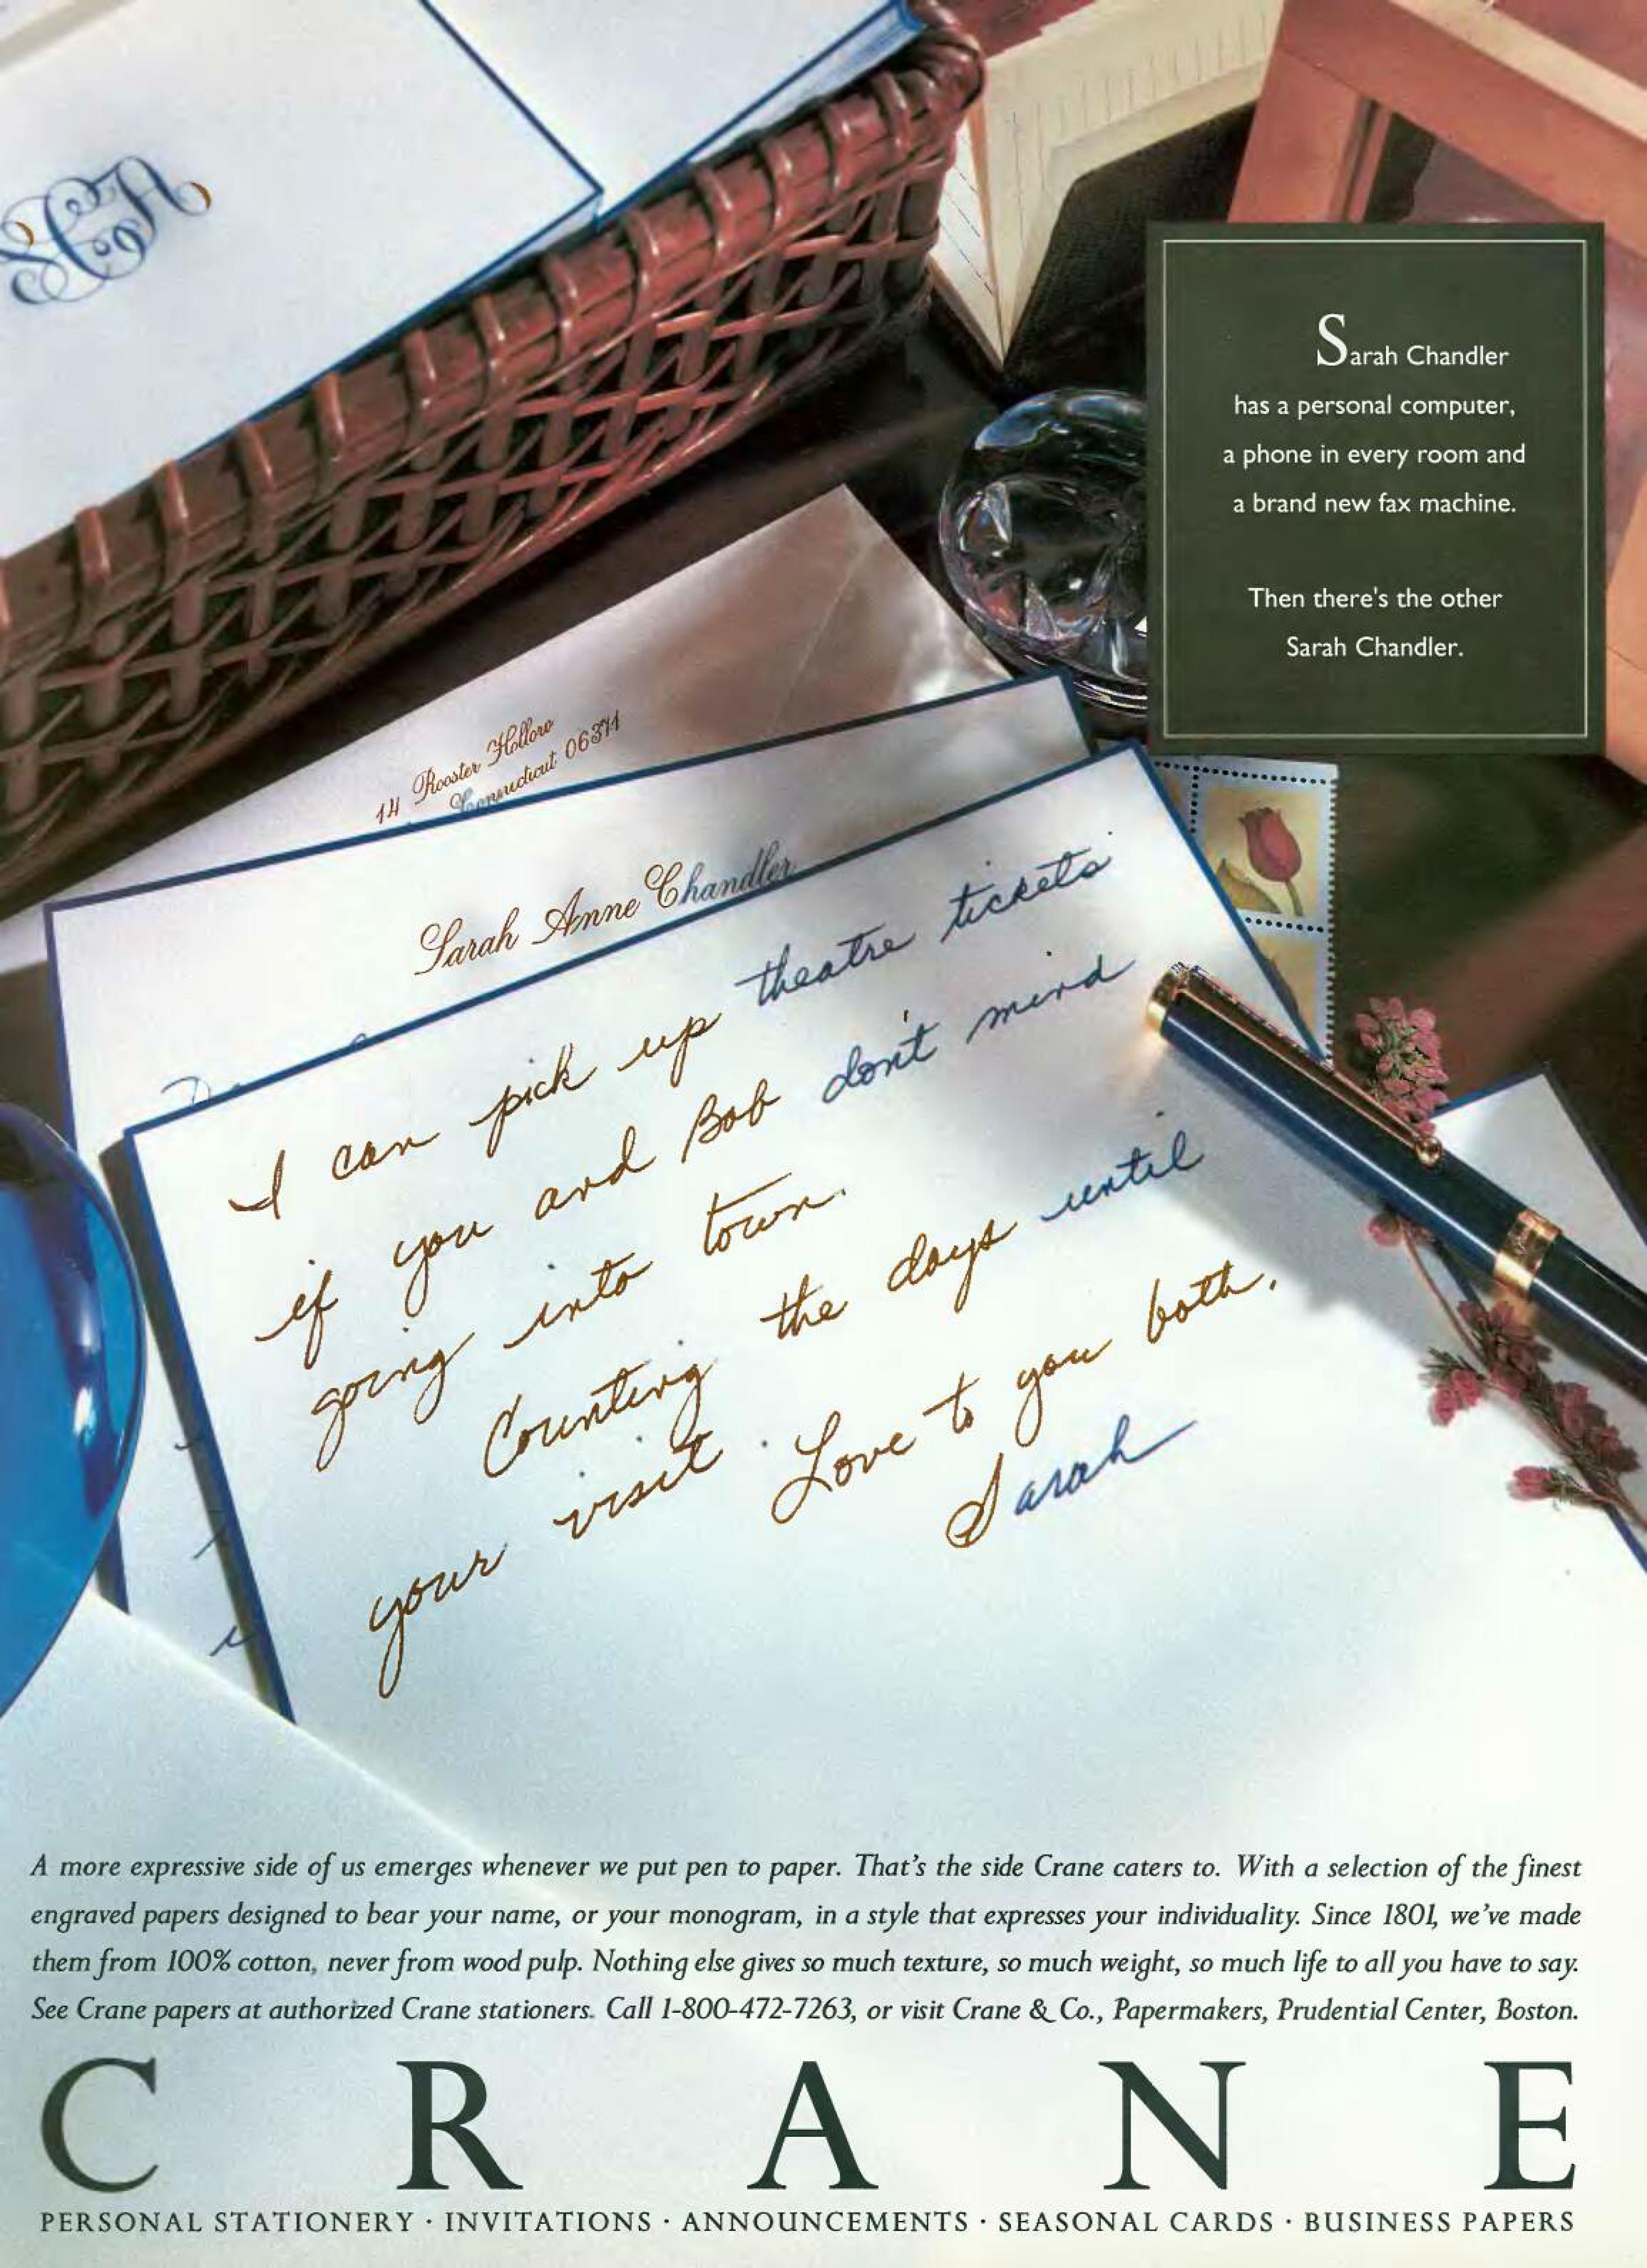 Sarah Chandler
has a personal computer,
a phone in every room and
a brand new fax machine.
Then there's the other
Sarah Chandler.
14 Rooster Hollow
Connecticut 06371
Sarah Anne Chandler
I can pick up theatre tickets
if you and Bob don't mind
going into town.
Counting the days until
your visit. Love to you both.
Sarah
A more expressive side of us emerges whenever we put pen to paper. That's the side Crane caters to. With a selection of the finest
engraved papers designed to bear your name, or your monogram, in a style that expresses your individuality. Since 1801, we've made
them from 100% cotton, never from wood pulp. Nothing else gives so much texture, so much weight, so much life to all you have to say.
See Crane papers at authorized Crane stationers. Call 1-800-472-7263, or visit Crane & Co., Papermakers, Prudential Center, Boston.
CRANE
PERSONAL STATIONERY · INVITATIONS · ANNOUNCEMENTS · SEASONAL CARDS · BUSINESS PAPERS